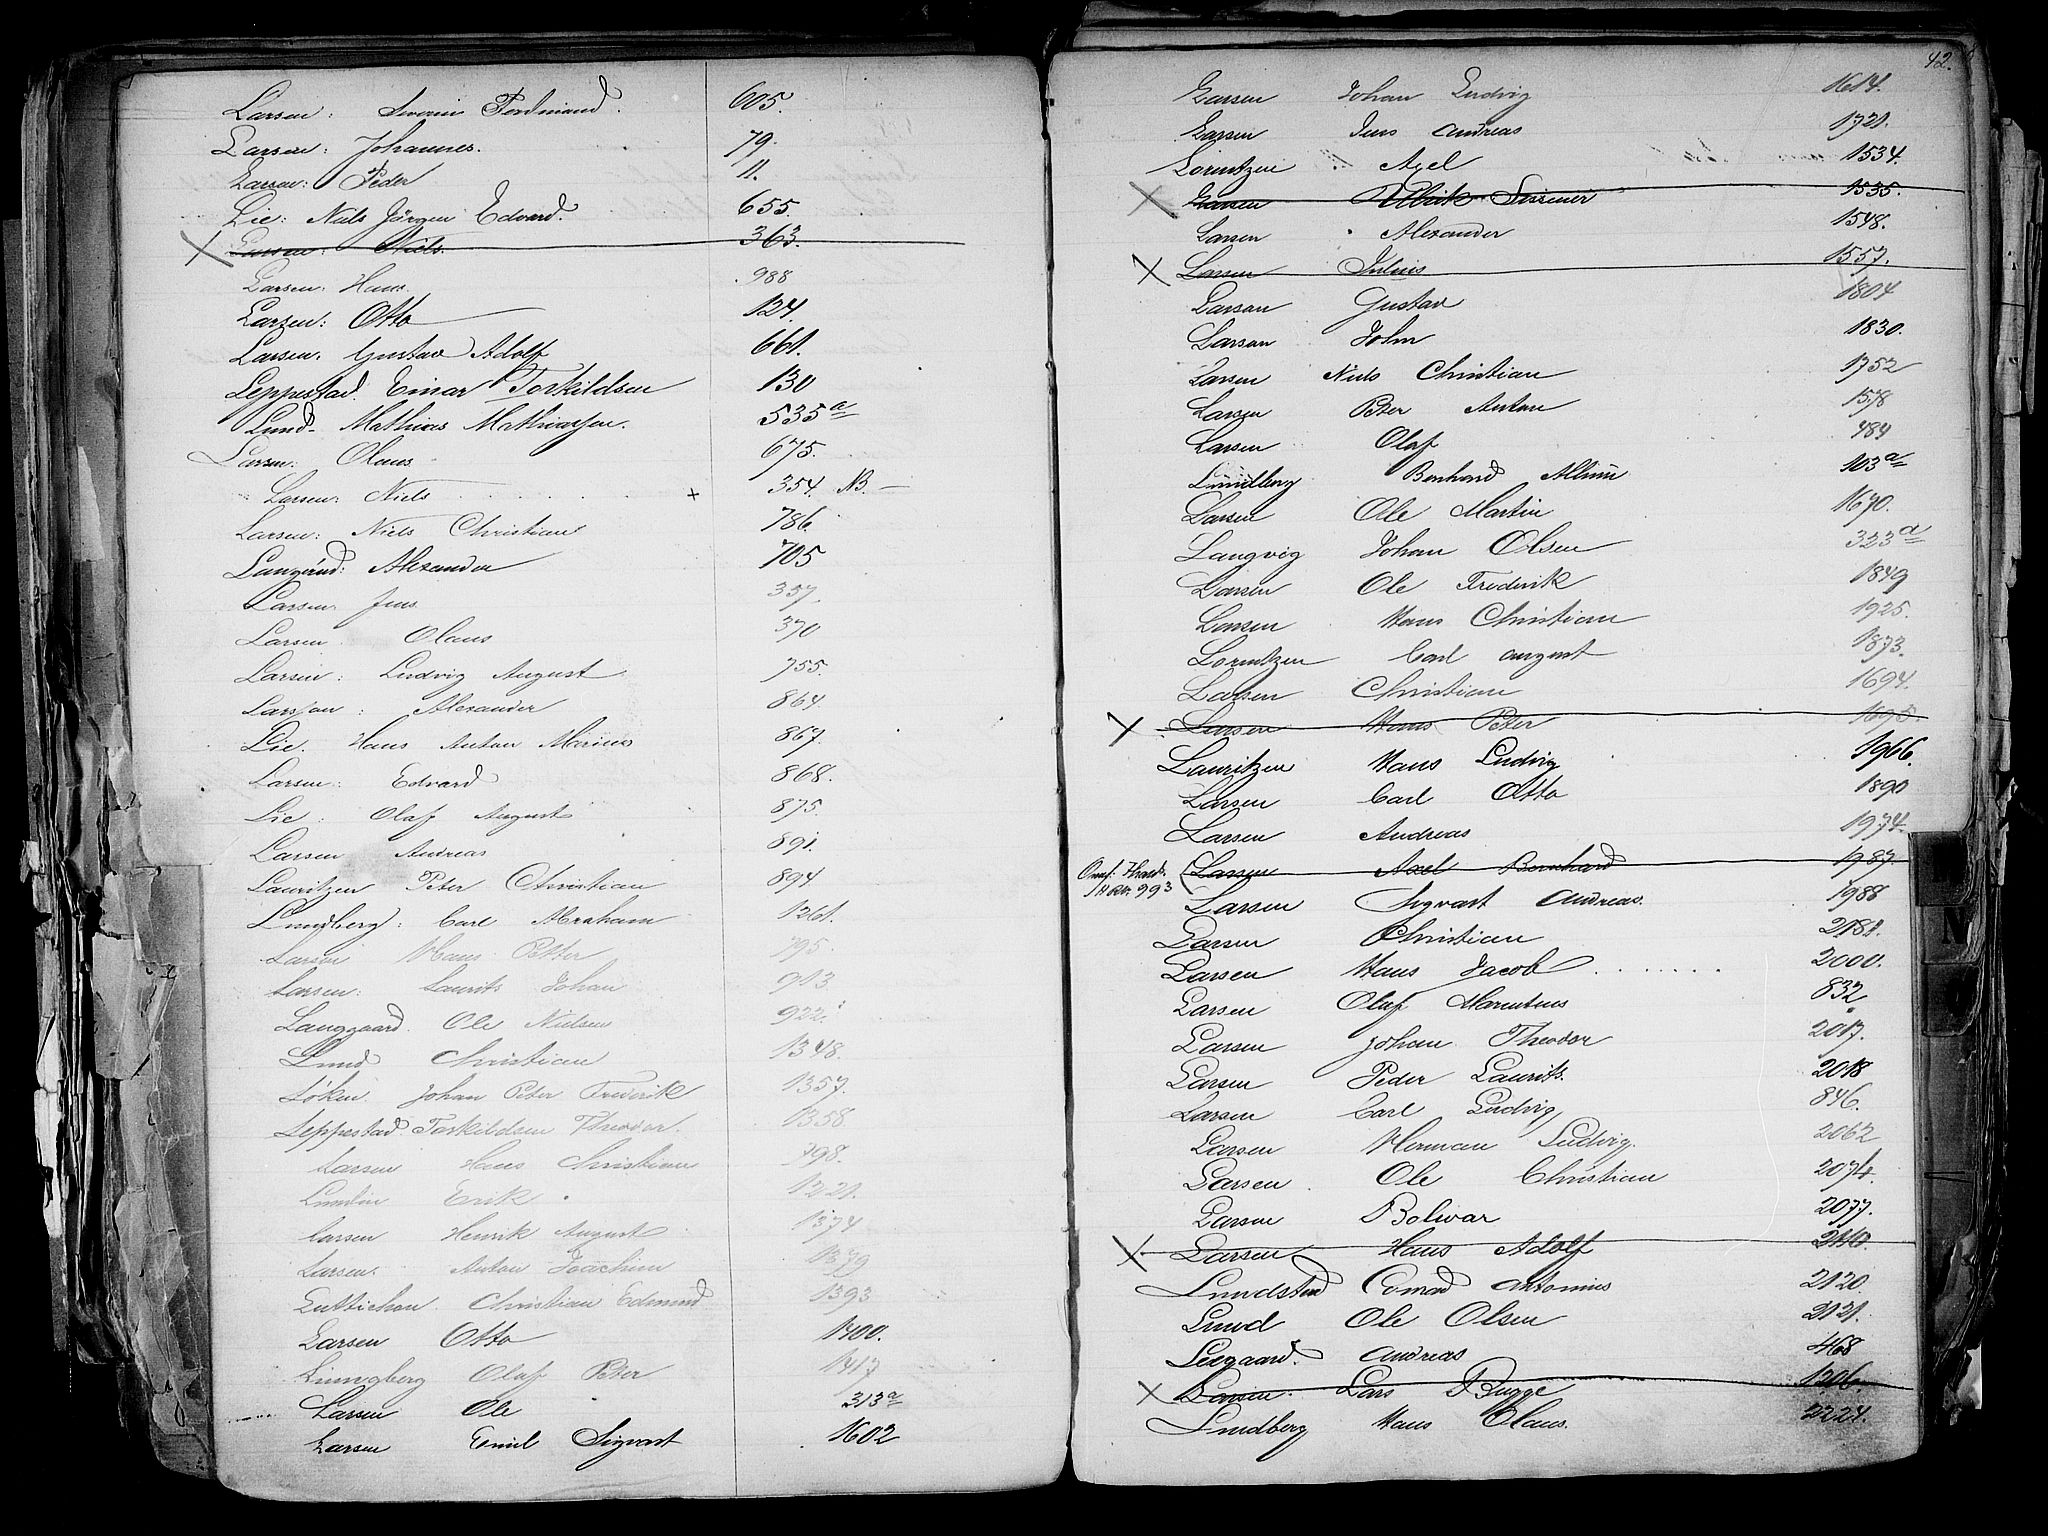 Larsen: Severin Ferdinand. 605.
Larsen: Johannes. 79.
Larsen: Peder 11.
Lie: Niels Jörgen Edvard. 655.
X Larsen: Niels. 363.
Larsen: Hans. 988
Larsen: Otto 124.
Larsen. Gustav Adolf 661.
Leppestad. Einar Torkildsen 130
Lund- Mathias Mathiassen. 535a
Larsen: Olaus 675.
Larsen: Niels + 354. NB.—
Larsen: Niels Christian 786.
Langerud: Alexander 705
Larsen. Jens 357.
Larsen. Olaus 370
Larsen: Ludvig August 755.
Larsson: Alexander 864.
Lie. Hans Anton Marius 867.
Larsen: Edvard 868.
Lie: Olaf August 875.
Larsen Andreas 891.
Lauritzen Peter Christian 894.
Lundberg: Carl Abraham 1261.
Larsen Hans Petter 795.
Larsen: Laurits Johan 913
Langgaard. Ole Nielsen 922.
Lund Christian 1348.
Löken. Johan Peter Frederik 1357.
Leppestad. Torkildsen Theodor. 1358.
Larsen Hans Christian 798.
Lundin Erik 1221.
Larsen Henrik August 1374
Larsen. Anton Joachim 1379
Luttichau. Christian Edmund 1393
Larsen Otto 1400.
Ljungberg Olaf Peter 1417
Larsen Ole 313a
Larsen Emil Sigvart 1602
42.
Larsen Johan Ludvig 1614.
Larsen Jens Andreas 1721.
Lorentzen Axel 1534.
X Larsen Ulbrik Sissener 1535.
Larsen Alexander 1548.
X Larsen Julius 1557.
Larsen Gustav 1804
Larsen John 1830.
Larsen Niels Christian 1752
Larsen Peter Anton 1578
Larsen Olaf 484
Lundberg Bernhard Albin 103a
Larsen Ole Martin 1670.
Langvig Johan Olsen 323a
Larsen Ole Frederik 1849
Larsen Hans Christian 1925.
Lorentzen Carl August 1873.
Larsen Christian 1694.
X Larsen Hans Peter 1695.
Lauritzen Hans Ludvig 1966.
Larsen Carl Otto 1890
Larsen Andreas 1974.
(Larsen Axel Bernhard 1987
993
Larsen Sigvart Andreas. 1988
Larsen Christian 2181.
Larsen Hans Jacob 2000.
Larsen Olaf Marentius 832
Larsen Johan Theodor 2017.
Larsen Peder Laurits. 2018
Larsen Carl Ludvig 846.
Larsen Herman Ludvig. 2062
Larsen Ole Christian 2074.
Larsen Bolivar 2077.
X Larsen Hans Adolf 2110.
Lundsted Conrad Antonius 2120
Lund Ole Olsen 2121.
Leegaard. Andreas 468
X Larsen. Lars Bugge 1206.
Lundberg Hans Olaus. 2224.